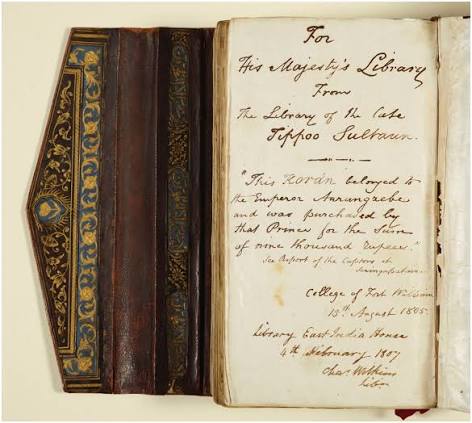 For
His Majesty's Library
From
The Library of the late
Tippoo Sultaun.
"This Korân belonged to
the Emperor Aurungzebe
and was purchased by
that Prince for the Sum
of nine thousand Rupees."
See Report of the Captors at
Seringapatam.
College of Fort William
13th August 1805.
Library East India House
4th February 1807
Chas. Wilkins
Libn.